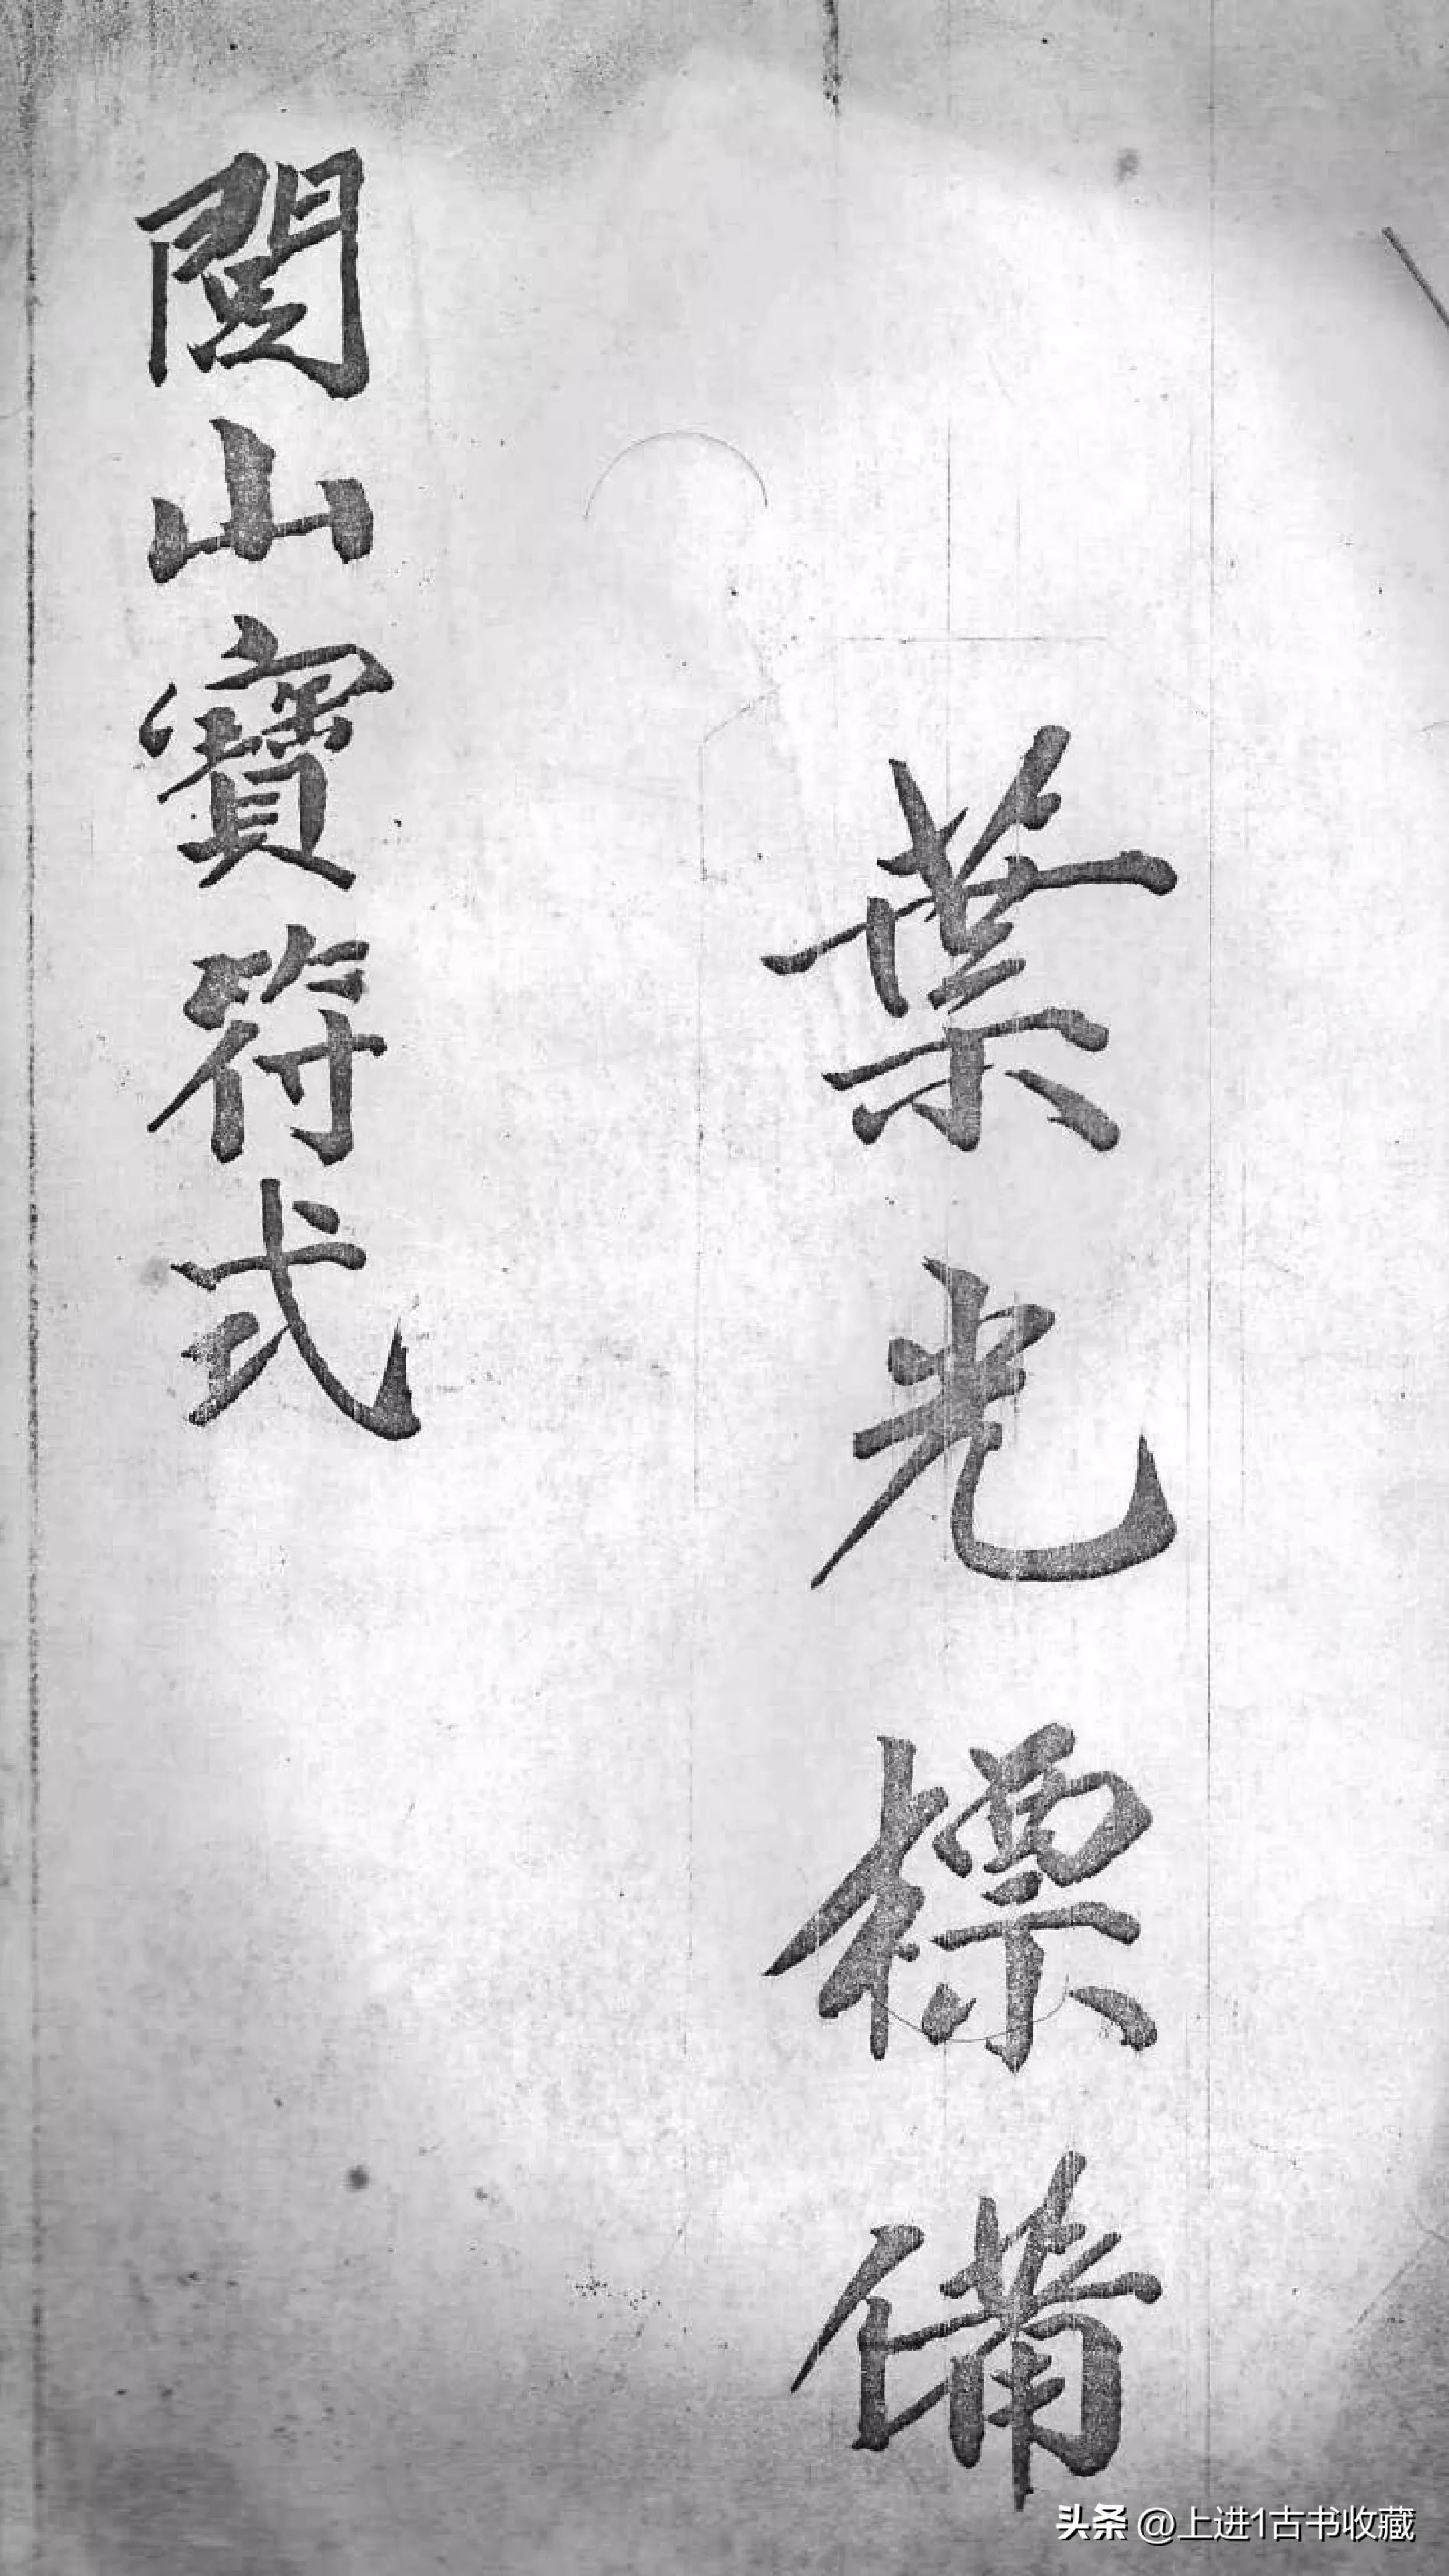 葉光標備
閭山寶符式
头条 @上进1古书收藏